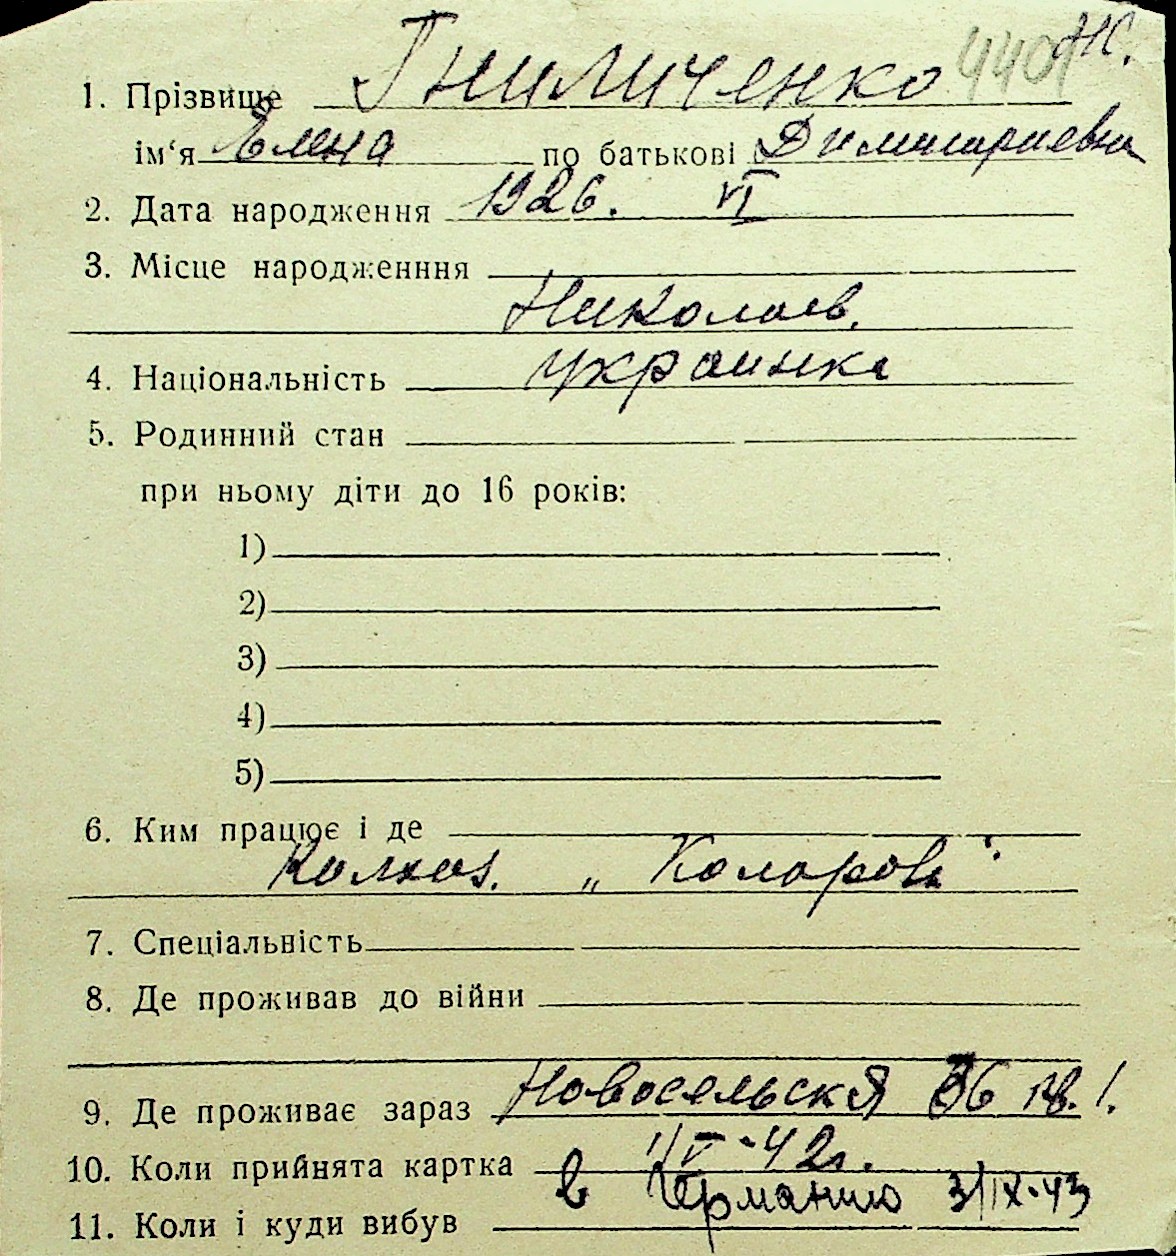 1. Прізвище Гниличенко 4401 Ж.
ім‘я Елена по батькові Димитриевна
2. Дата народження 1926. VI
3. Місце народженння
Николаев.
4. Національність украинка
5. Родинний стан
при ньому діти до 16 років:
1)
2)
3)
4)
5)
6. Ким працює і де
Колхоз. „Коларова“
7. Спеціальність
8. Де проживав до війни
9. Де проживає зараз Новосельская 36 кв. 1.
10. Коли прийнята картка 1/V-42г.
11. Коли і куди вибув в Германию 3/IX-43